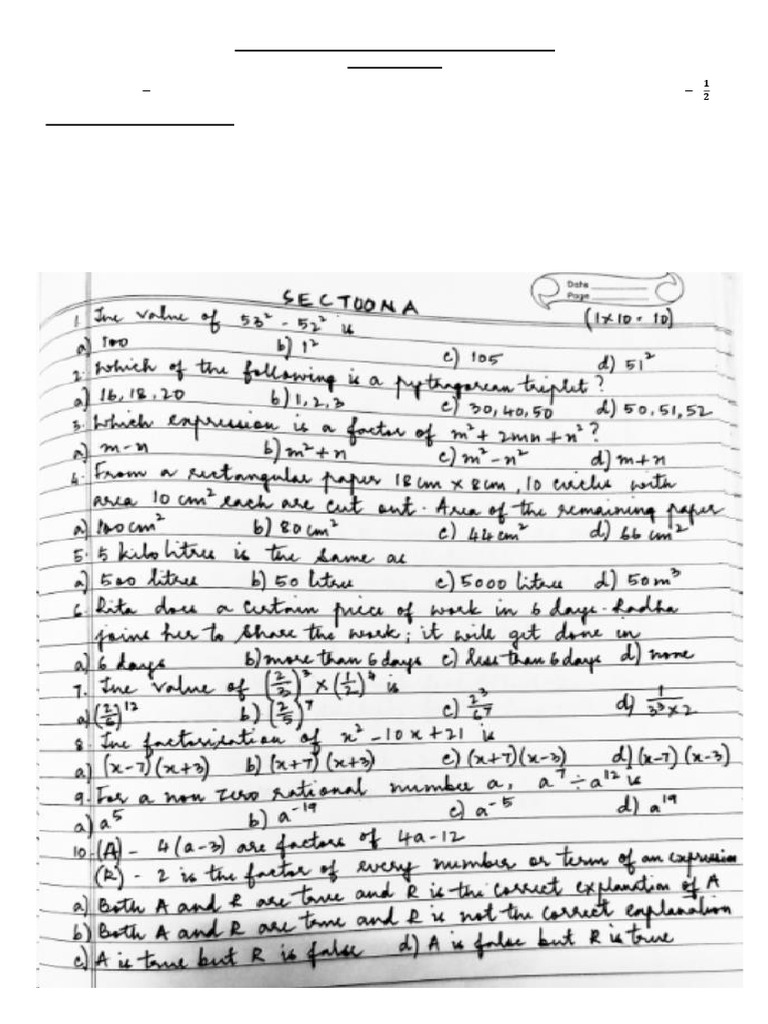 – – 1/2
Date
Page
SECTOON A
(1×10=10)
1. The value of 53² - 52² is
a) 100 b) 1² c) 105 d) 51²
2. Which of the following is a pythagorean triplet?
a) 16, 18, 20 b) 1, 2, 3 c) 30, 40, 50 d) 50, 51, 52
3. Which expression is a factor of m² + 2mn + n²?
a) m-n b) m²+n c) m²-n² d) m+n
4. From a rectangular paper 18 cm × 8 cm, 10 circles with
area 10 cm² each are cut out. Area of the remaining paper
a) 100 cm² b) 80 cm² c) 44 cm² d) 66 cm²
5. 5 kilo litres is the same as
a) 500 litres b) 50 litres c) 5000 litres d) 50 m³
6. Rita does a certain piece of work in 6 days. Radha
joins her to share the work; it will get done in
a) 6 days b) more than 6 days c) less than 6 days d) none
7. The value of (2/3)³ × (1/2)⁴ is
a) (2/6)¹² b) (2/5)⁷ c) 2³/6⁷ d) 1/3³×2
8. The factorisation of x² - 10x + 21 is
a) (x-7)(x+3) b) (x+7)(x+3) c) (x+7)(x-3) d) (x-7)(x-3)
9. For a non zero rational number a, a⁷ ÷ a¹² is
a) a⁵ b) a⁻¹⁹ c) a⁻⁵ d) a¹⁹
10. (A) - 4(a-3) are factors of 4a-12
(R) - 2 is the factor of every number or term of an expression
a) Both A and R are true and R is the correct explanation of A
b) Both A and R are true and R is not the correct explanation
c) A is true but R is false d) A is false but R is true